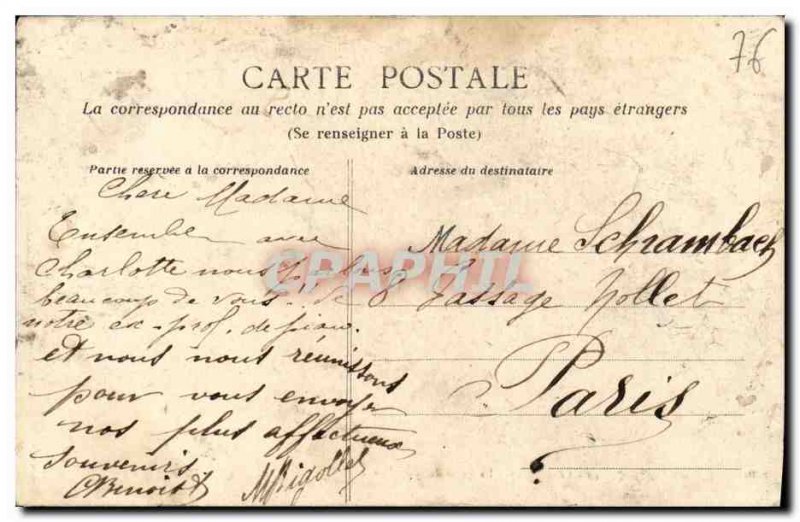 76
CARTE POSTALE
La correspondance au recto n'est pas acceptée par tous les pays étrangers
(Se renseigner à la Poste)
Partie reservée a la correspondance
Chère Madame
Ensemble avec
Charlotte nous parlons
beaucoup de vous. de
notre ex-prof. de piano.
et nous nous réunissons
pour vous envoyer
nos plus affectueux
souvenirs.
CBenoist
Adresse du destinataire
Madame Schrambach
8 Passage Nollet
Paris
CPAPHIL